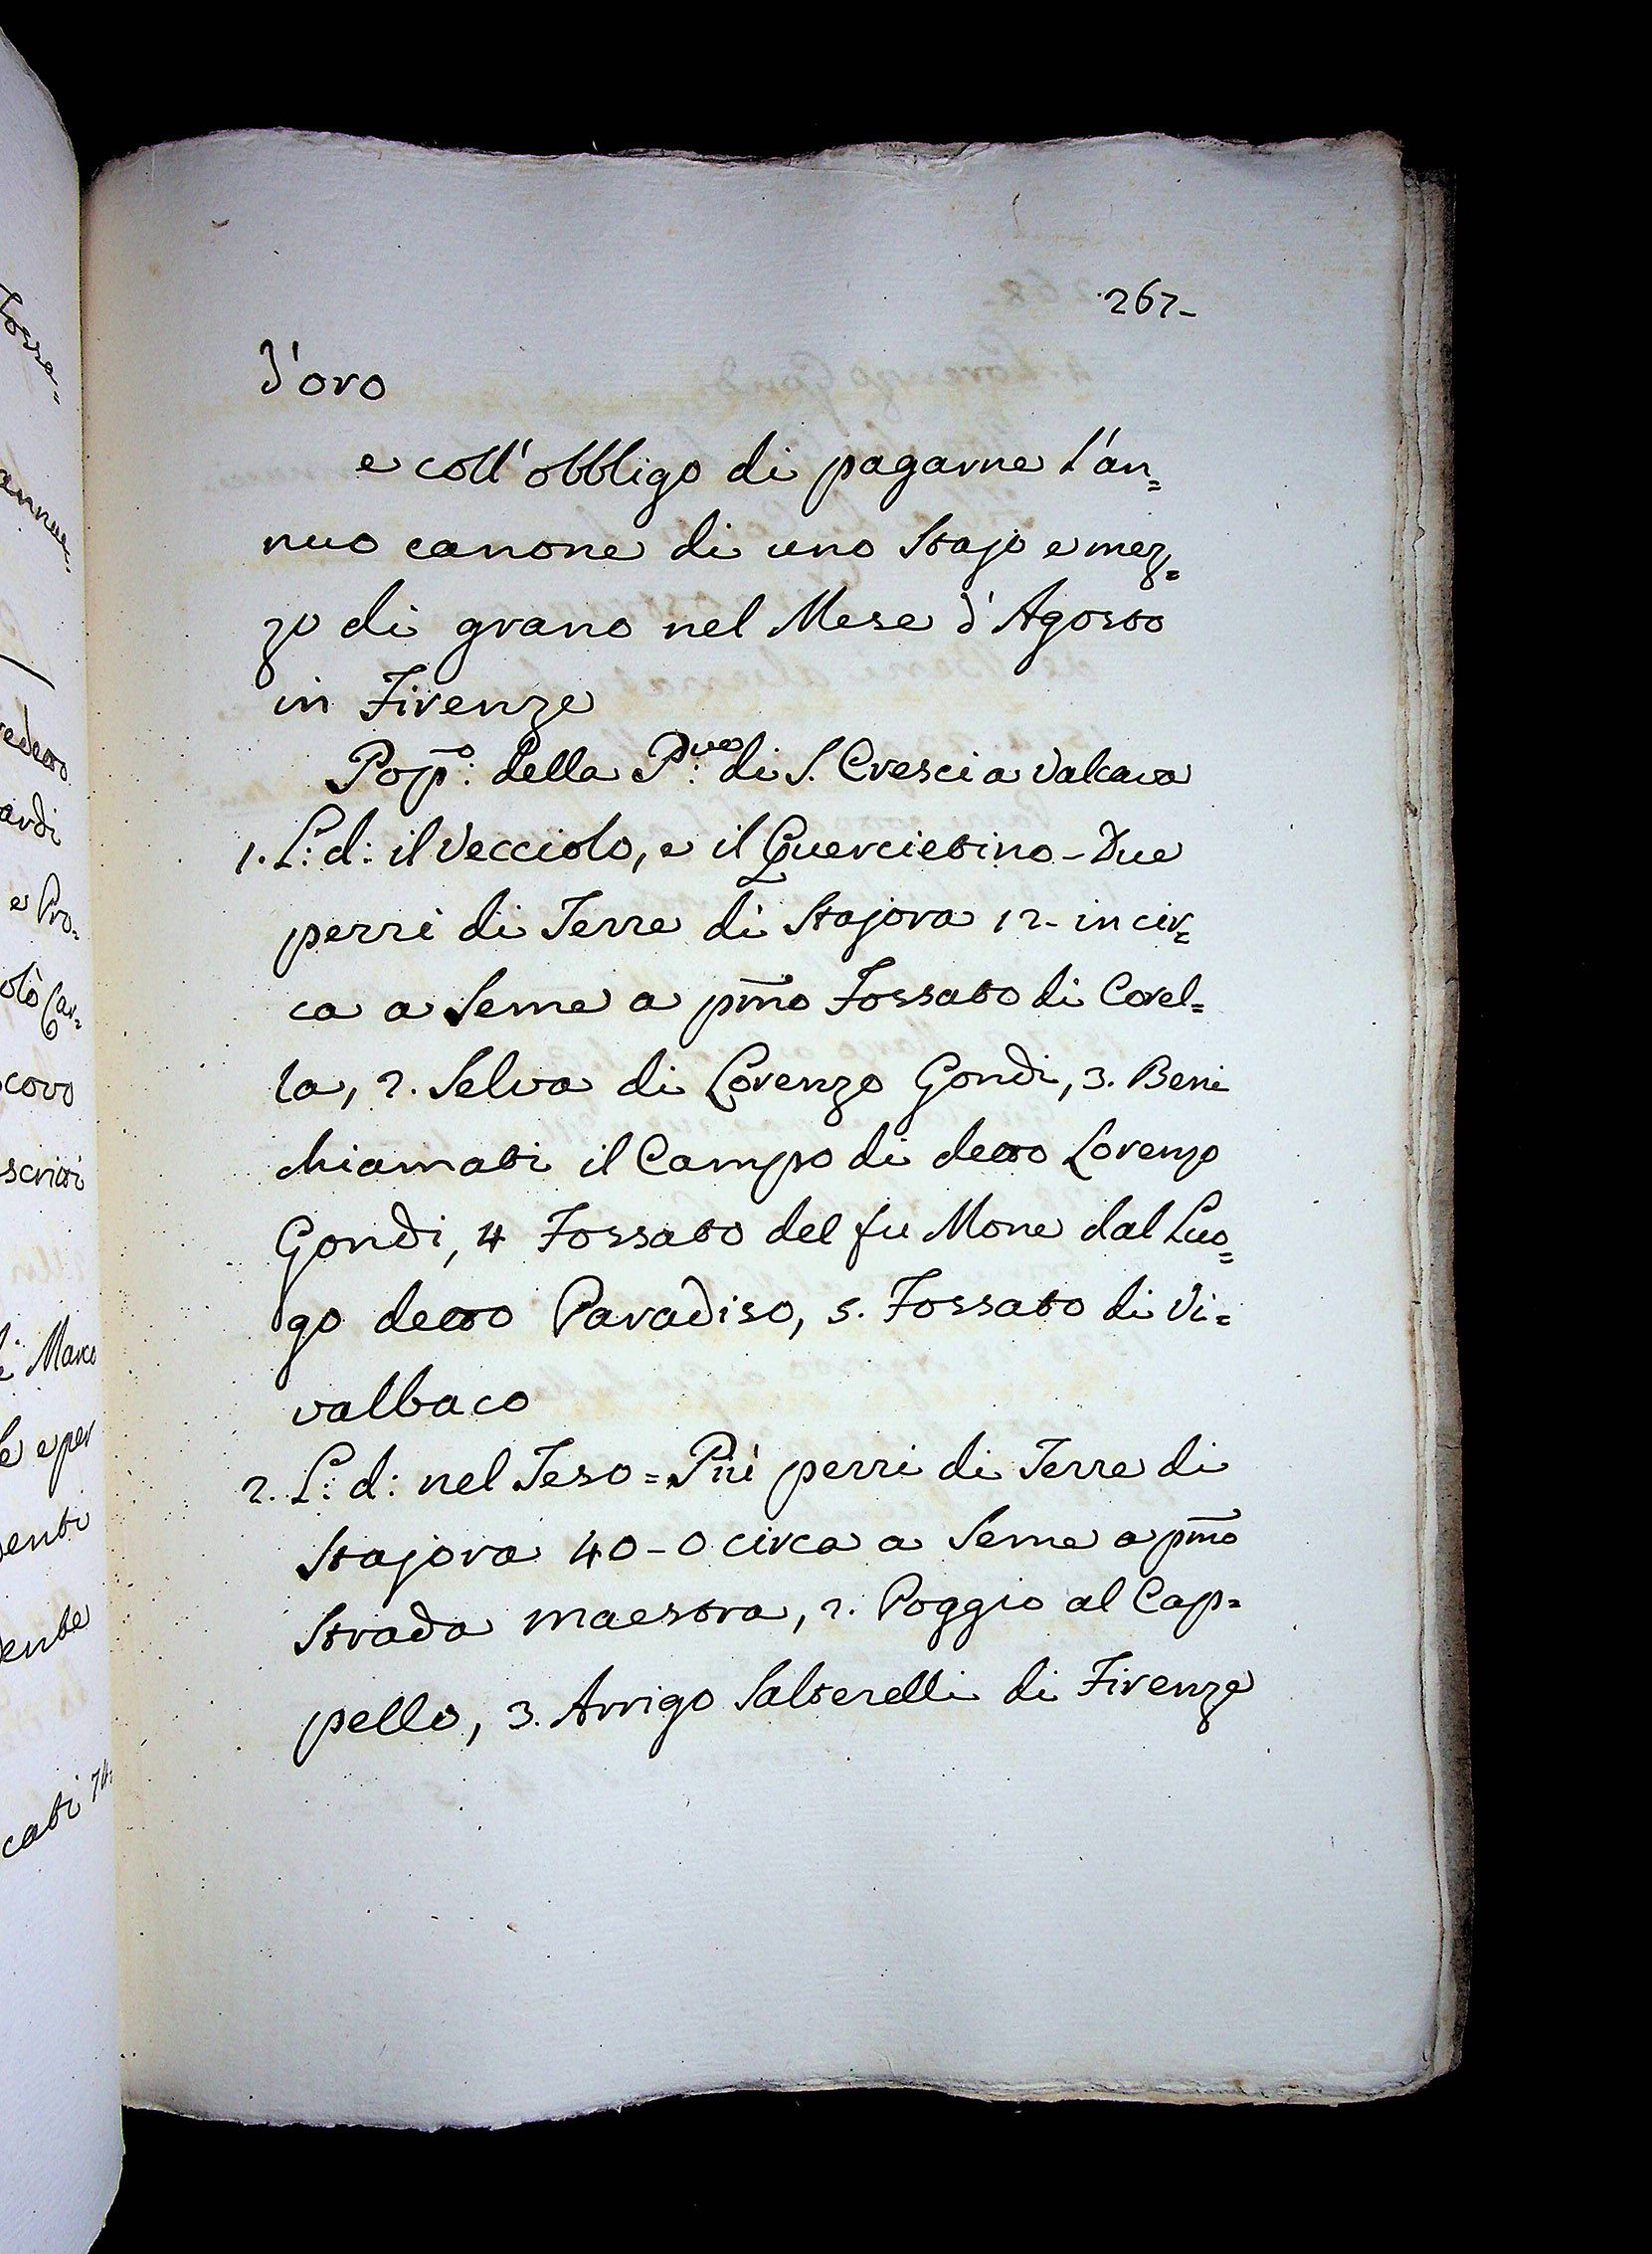 267-
d'oro
e coll'obbligo di pagarne l'an=
nuo canone di uno Stajo e mez=
zo di grano nel Mese d'Agosto
in Firenze
Pop̄o: della P:ve di S. Cresci a Valcava
1. L: d: il Vecciolo, e il Quercietino - Due
pezzi di Terre di Stajora 12 - in cir=
ca a Seme a pm̄o Fossato di Corel=
la, 2. Selva di Lorenzo Gondi, 3. Beni
chiamati il Campo di detto Lorenzo
Gondi, 4 Fossato del fu Mone dal Luo=
go detto Paradiso, 5. Fossato di Vi=
valbaco
2. L: d: nel Teso = Più pezzi di Terre di
Stajora 40 - 0 circa a Seme a pm̄o
Strada maestra, 2. Poggio al Cap=
pello, 3. Arrigo Salterelli di Firenze